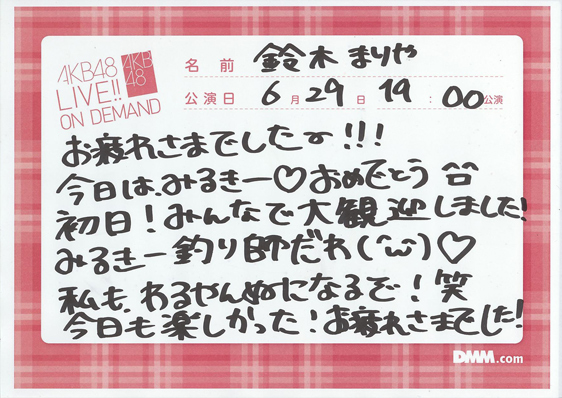 AKB48
LIVE!!
ON DEMAND
AKB
48
名前 鈴木まりや
公演日 6月29日 19:00公演
お疲れさまでしたー!!!
今日は、みるきー♡おめでとう
初日!みんなで大観迎しました!
みるきー釣り師だわ(^ω^)♡
私も、わるやんぬになるで!笑
今日も楽しかった!お疲れさまでした!
DMM.com